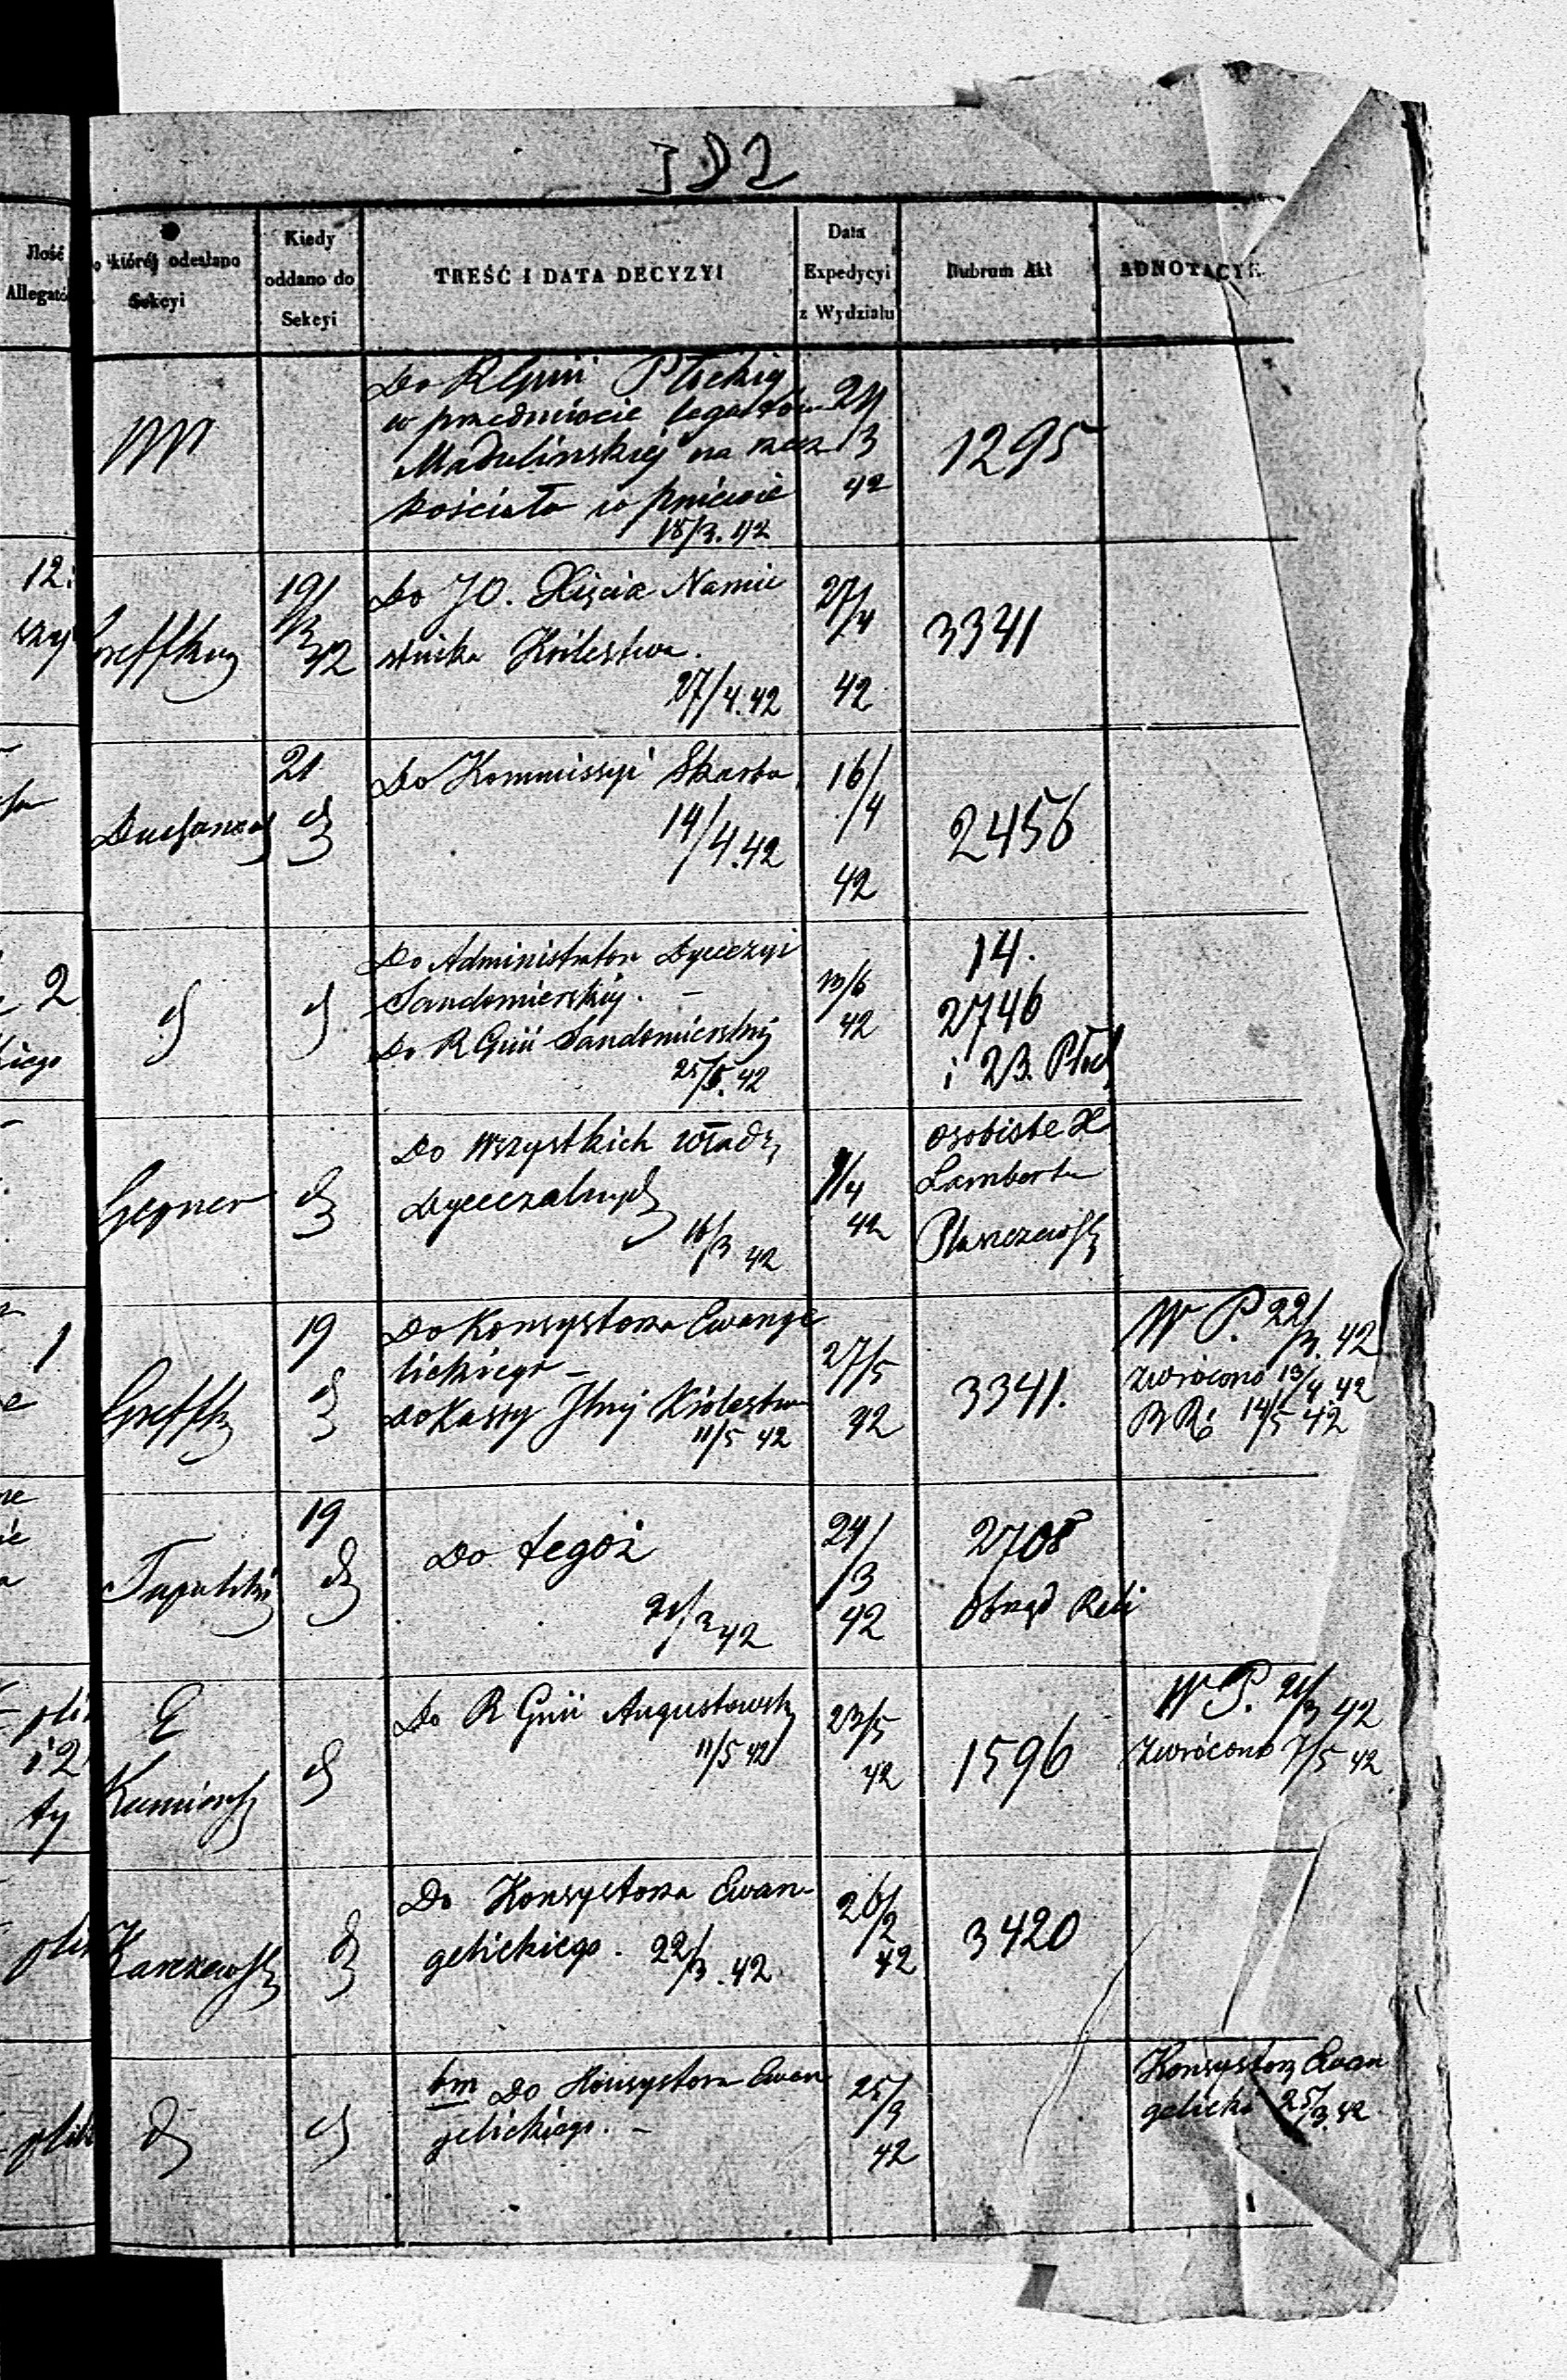 Ilość
Allegató
o któréj odesłano
Sekcyi
Kiedy
oddano do
Sekcyi
TREŚĆ I DATA DECYZYI
Data
Expedycyi
z Wydziału
Rubrum Akt
ADNOTACYE
Do RGnii Płockiej
w przedmiocie legatów
Madulińskiej na rzecz
kościoła w pniewie
18/3. 42
24
/3
42
1295
12.
19/
/3
42
Do JO. Xięcia Namie
stnika Królestwa.
27/4. 42
27/
/4
42
3341
21
Do Kommissyi Skarbu,
14/4. 42
16/
/4
42
2456
2
kiego
Do Administratora Dyecezyi
Sandomierskiej. –
Do R Gnii Sandomierskiej
25/5. 42
13/6
42
14.
2746
i 23. Płoc
Gepner
Do Wszystkich Władz
Dyecezalnych
16/3 42
1/4
42
osobiste X
Lamberta
1
Greffk
19
Do Konsystorza Ewange
lickiego –
Do Kassy Głnej Królestwa
11/5 42
27/5
42
3341.
W P. 22/3. 42
zwrócono 13/4 42
14/5 42
19
Do tegoż
21/3 42
24/
/3
42
2708
Obrząd Reli
plik
i 2
ty
E
Do R Gnii Augustowsk
11/5 42
23/5
42
1596
W P. 21/3 42
zwrócono 7/5 42
plik
Karczewsk
Do Konsystorza Ewan
gelickiego. 22/3. 42
26/
2
42
3420
plik
bm Do Konsystorza Ewan
gelickiego. –
25/
/3
42
Konsystorz Ewan
gelicki 25/3. 42